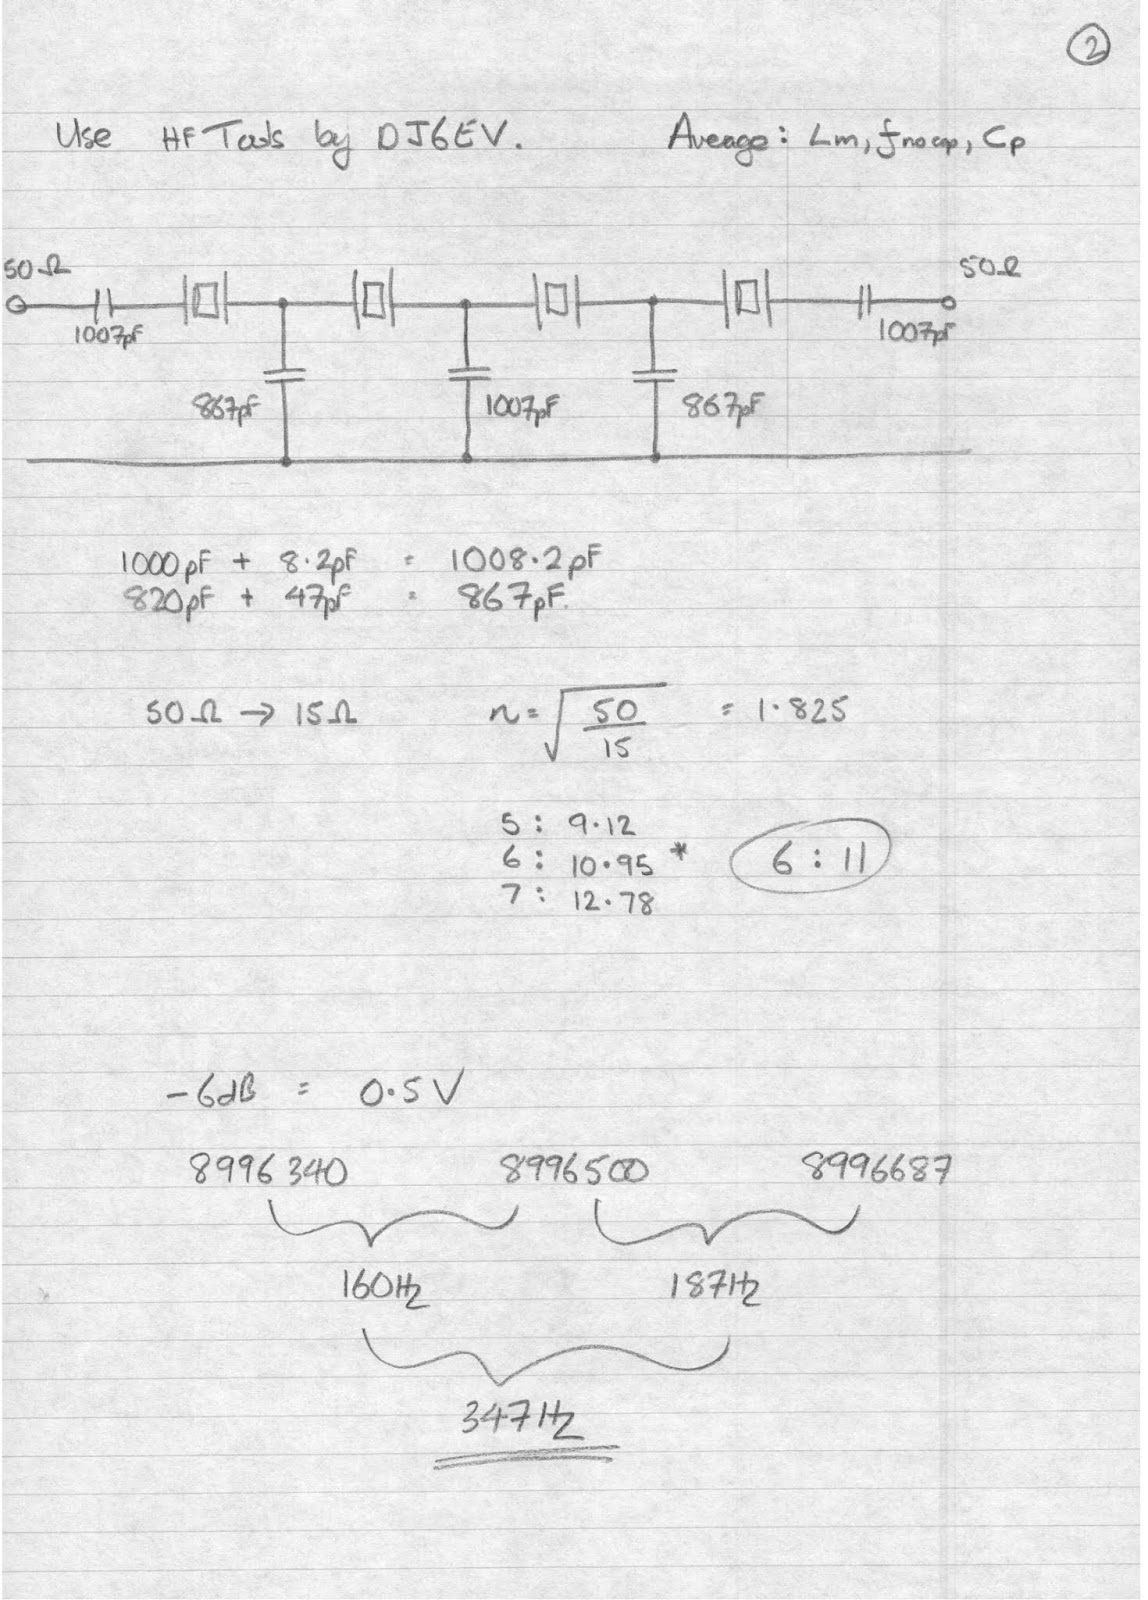 2
Use HF Tools by DJ6EV. Average: Lm, fnocap, Cp
50Ω 50Ω
1007pF 1007pF
867pF 1007pF 867pF
1000pF + 8.2pF = 1008.2pF
820pF + 47pF = 867pF.
50Ω → 15Ω n = √50/15 = 1.825
5 : 9.12
6 : 10.95 * 6 : 11
7 : 12.78
-6dB = 0.5V
8996340 8996500 8996687
160Hz 187Hz
347Hz